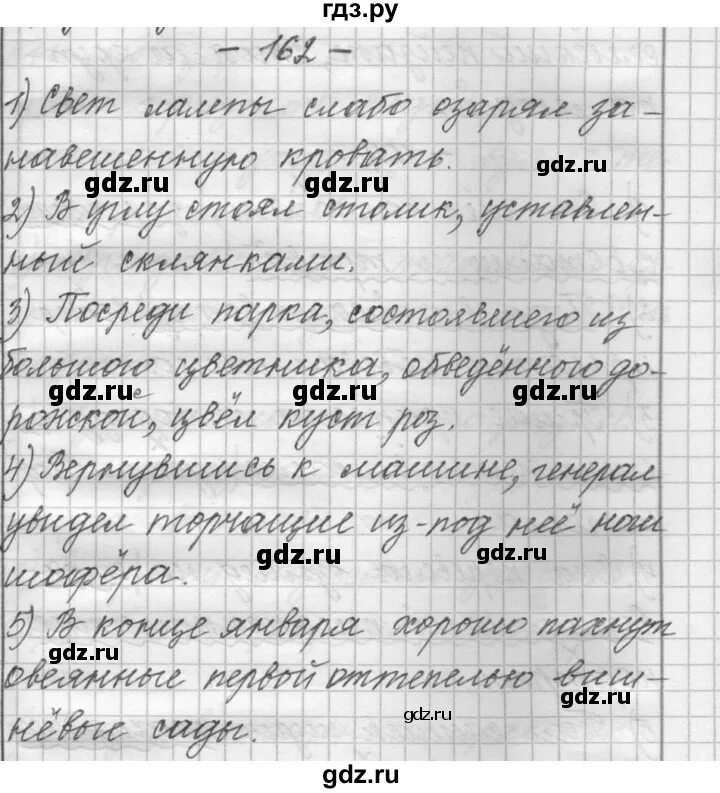 гдз.ру
- 162 -
1) Свет лампы слабо озарял за-
навешенную кровать.
gdz.ru
gdz.ru gdz.ru
2) В углу стоял столик, уставлен-
ный склянками.
3) Посреди парка, состоявшего из
большого цветника, обведённого до-
gdz.ru gdz.ru gdz.ru
рожской, цвёл куст роз.
4) Вернувшись к машине, генерал
увидел торчащие из-под неё ноги
gdz.ru gdz.ru
шофёра.
5) В конце января хорошо пахнут
gdz.ru
овеянные первой оттепелью виш-
gdz.ru
нёвые сады.
gdz.ru
gdz.ru